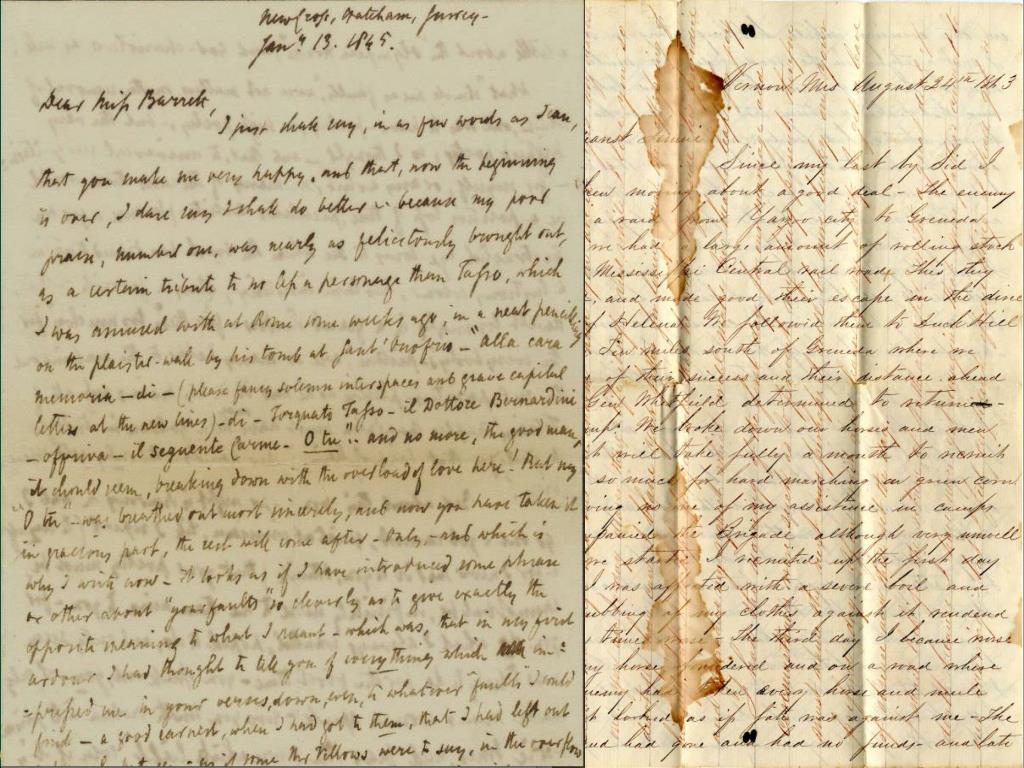 New Cross, Hatcham, Surrey.
Jany 13. 1845.
Dear Miss Barrett,
I just shall say, in as few words as I can,
that you make me very happy, and that, now the beginning
is over, I dare say I shall do better - because my poor
praise, number one, was nearly as felicitously brought out,
as a certain tribute to no less a personage than Tasso, which
I was amused with at Rome some weeks ago, in a neat pencilling
on the plaister-wall by his tomb at Sant' Onofrio - "Alla cara
memoria - di - (please fancy solemn interspaces and grave capital
letters at the new lines) - di - Torquato Tasso - il Dottore Bernardini
- offriva - il seguente Carme - O tu" - and no more, the good man,
it should seem, breaking down with the overload of love here! But my
"O tu" - was breathed out most sincerely, and now you have taken it
in gracious part, the rest will come after. Only, - and which is
why I write now - it looks as if I have introduced some phrase
or other about "your faults" so cleverly as to give exactly the
opposite meaning to what I meant - which was, that in my first
ardour I had thought to tell you of everything which im-
-pressed me in your verses, down, even, to whatever "faults" I could
find - a good earnest, when I had got to them, that I had left out
as if some Mr Fellows were to say, in the overflow
Vernon Miss August 24th 1863
Since my last by Sid I
moving about a good deal - The enemy
a raid from Yazoo city to Grenada
we had a large amount of rolling stock
Mississippi Central rail road. This they
and made good their escape in the direc
Helena. We followed them to Duck Hill
Ten miles south of Grenada where in
of their success and their distance ahead
Genl Whitfild determined to return -
We broke down our horses and men
it will take fully a month to recruit
so much for hard marching on green corn
no one of my assistance in camps
the Brigade although very unwell
we started I recruited up the first day
I was afflicted with a severe boil and
rubbing of my clothes against it rendered
The third day I became worse
my horse and on a road where
enemy had taken every horse and mule
it looked as if fate was against me - The
had gone and had no funds - and late